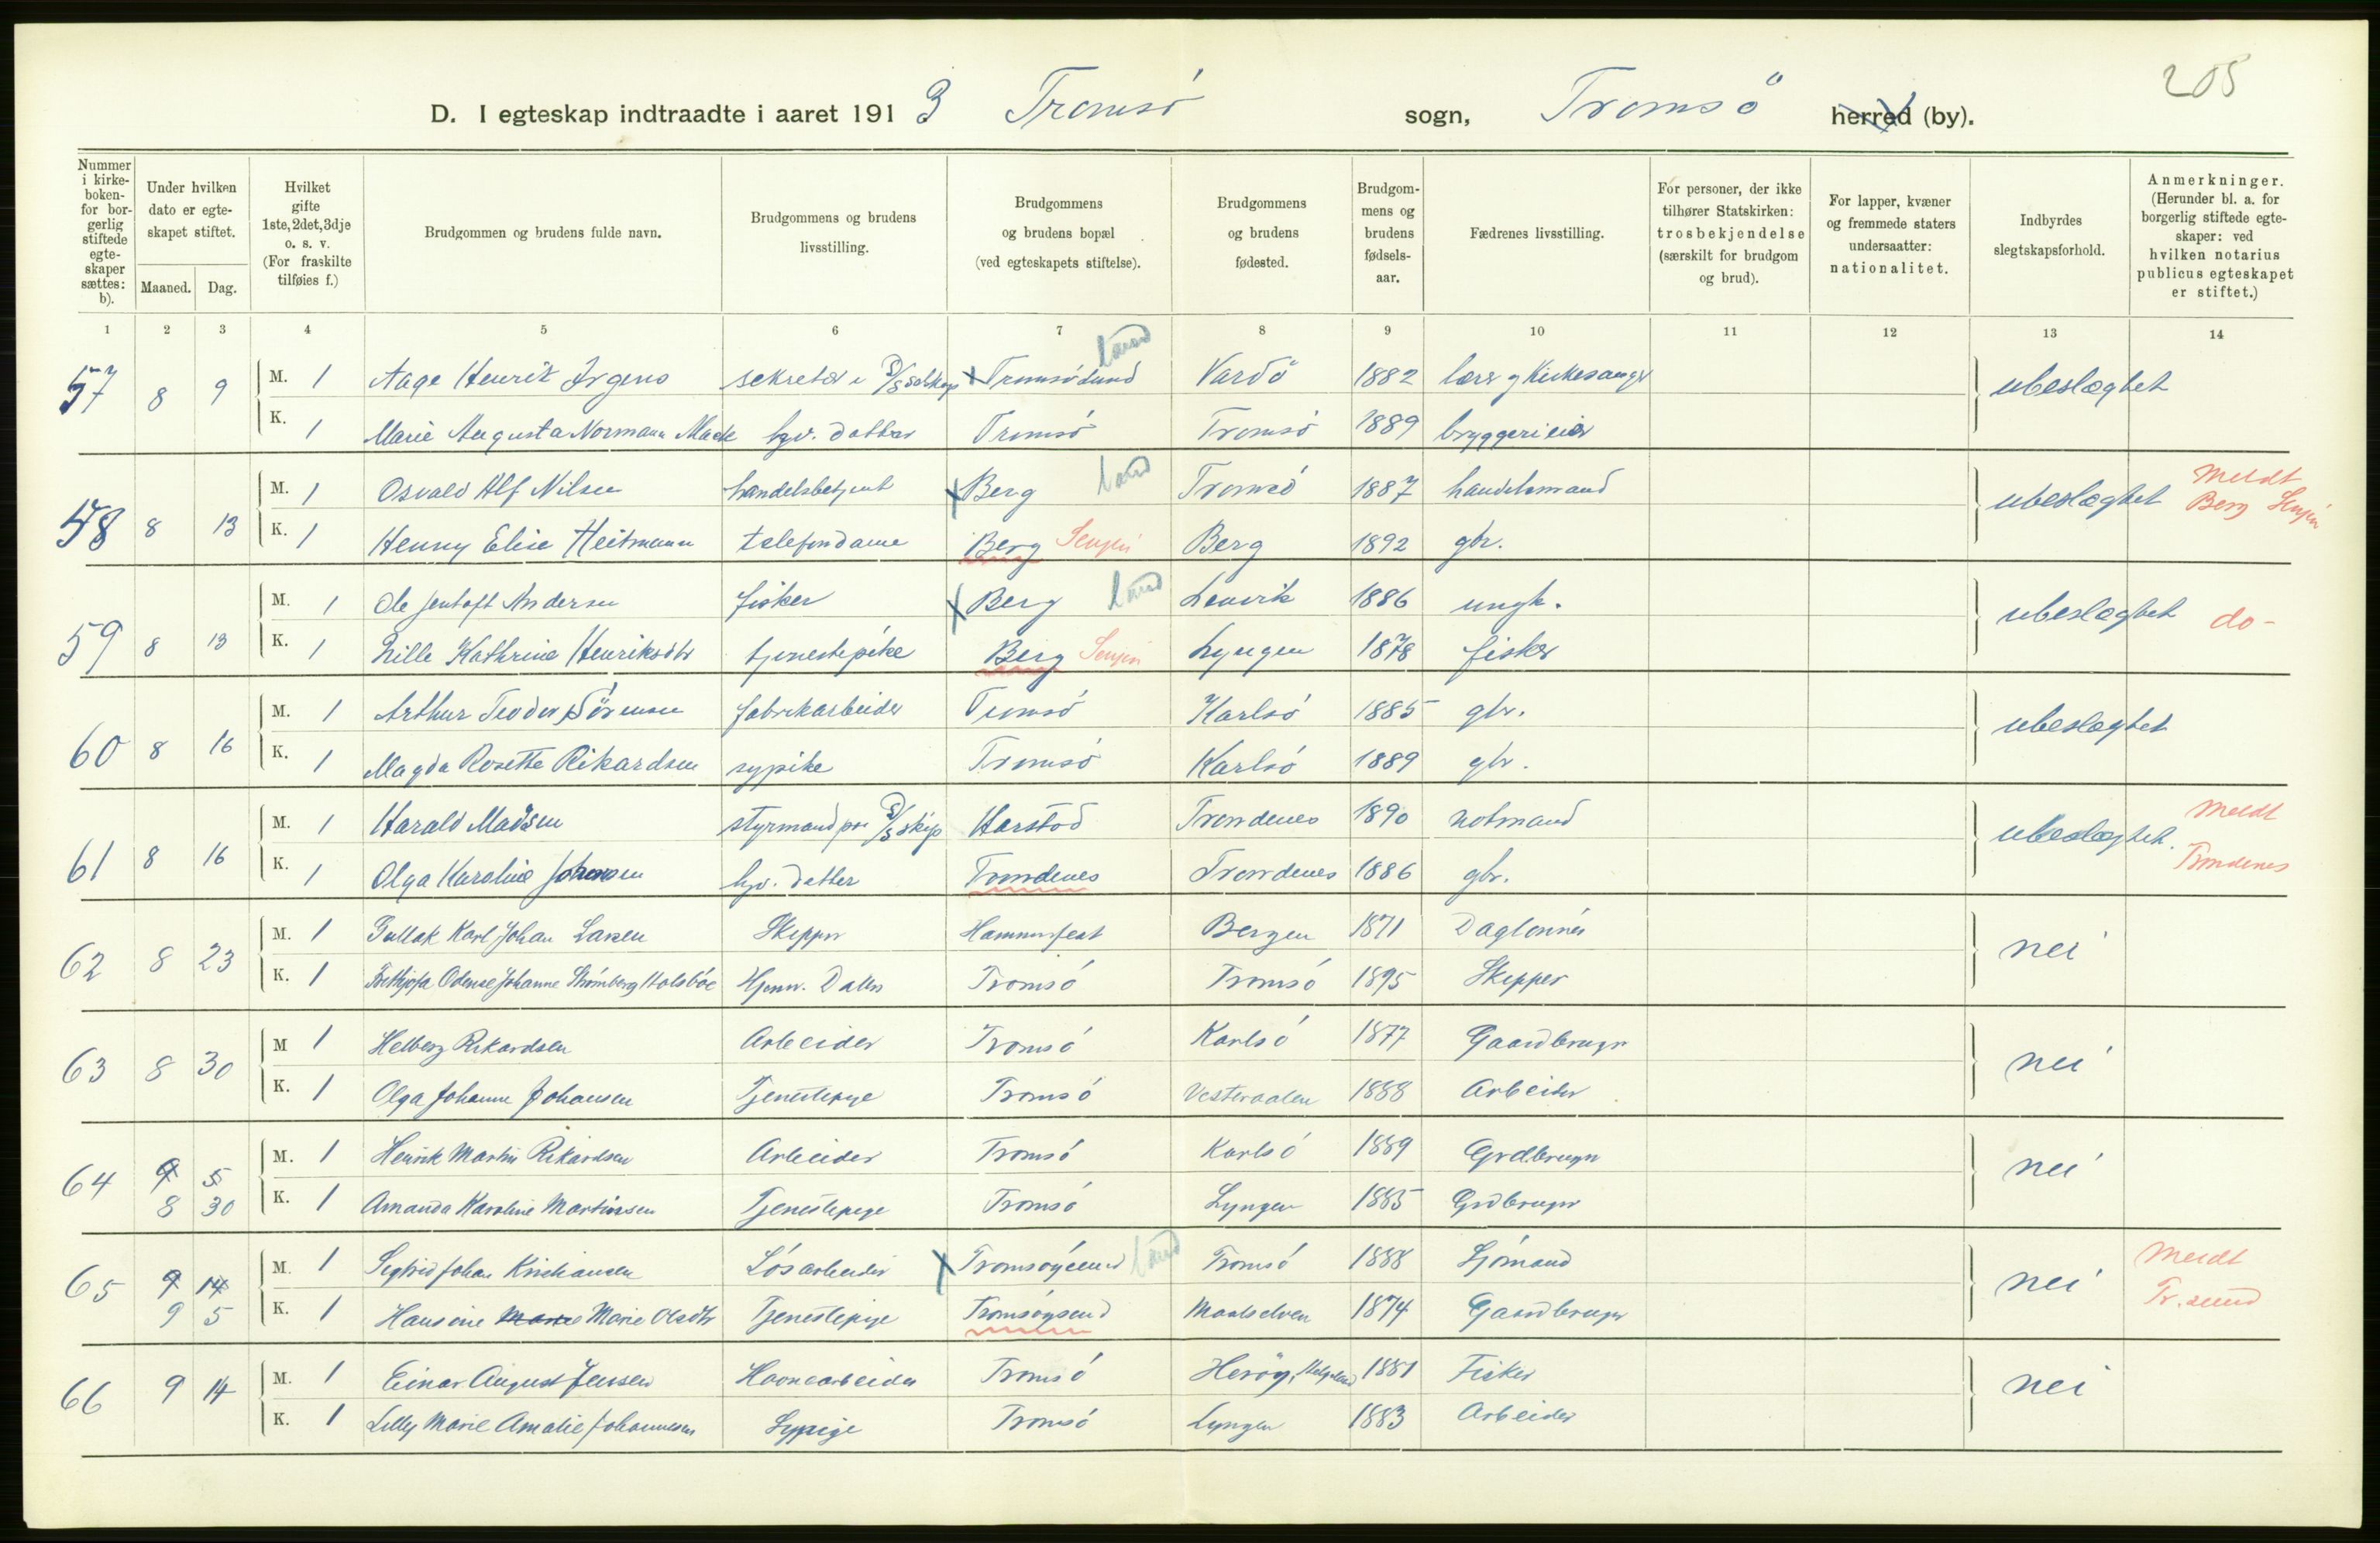 205
D. I egteskap indtraadte i aaret 1913 Tromsö sogn, Tromsö herred (by).
Nummer i kirke-boken- for bor-gerlig stiftede egte-skaper sættes: b).
Under hvilken dato er egte-skapet stiftet.
Maaned. Dag.
Hvilket gifte 1ste, 2det, 3dje o. s. v. (For fraskilte tilføies f.)
Brudgommen og brudens fulde navn.
Brudgommens og brudens livsstilling.
Brudgommens og brudens bopæl (ved egteskapets stiftelse).
Brudgommens og brudens fødested.
Brudgom-mens og brudens fødsels-aar.
Fædrenes livsstilling.
For personer, der ikke tilhører Statskirken: trosbekjendelse (særskilt for brudgom og brud).
For lapper, kvæner og fremmede staters undersaatter: nationalitet.
Indbyrdes slegtskapsforhold.
Anmerkninger. (Herunder bl. a. for borgerlig stiftede egte-skaper: ved hvilken notarius publicus egteskapet er stiftet.)
1 2 3 4 5 6 7 8 9 10 11 12 13 14
57 8 9 M. 1 Aage Henrik Irgens sekretær i D/S selskap x Tromsösund Land Vardö 1882 lærer og Kirkesanger ubeslægtet
K. 1 Marie Augusta Normann Mack hjv. datter Tromsö Tromsö 1889 bryggerieier
58 8 13 M. 1 Osvald Alf Nilsen handelsbetjent x Berg Land Tromsö 1887 handelsmand ubeslægtet Meldt Berg Senjen
K. 1 Henny Elise Heitmann telefondame Berg Senjen Berg 1892 gbr.
59 8 13 M. 1 Ole Jentoft Andersen fisker x Berg Land Lenvik 1886 ungk. ubeslægtet do-
K. 1 Nille Kathrine Henriksdtr tjenestepike Berg Senjen Lyngen 1878 fisker
60 8 16 M. 1 Arthur Teodor Sörensen fabrikarbeider Tromsö Karlsö 1885 gbr. ubeslægtet
K. 1 Magda Rosette Rikardsen sypike Tromsö Karlsö 1889 gbr.
61 8 16 M. 1 Harald Madsen styrmand paa D/S skip Harstad Trondenes 1890 notmand ubeslægtet. Meldt Trondenes
K. 1 Olga Karoline Johansen hjv. datter Trondenes Trondenes 1886 gbr.
62 8 23 M. 1 Karl Johan Larsen Skipper Hammerfest Bergen 1871 Daglönner nei
K. 1 Odense Johanne Strömberg Holsböe Hjemv. Datter Tromsö Tromsö 1895 Skipper
63 8 30 M 1 Helberg Rikardsen Arbeider Tromsö Karlsö 1877 Gaardbruger nei
K. 1 Olga Johanne Johansen Tjenestepige Tromsö Vesteraalen 1888 Arbeider
64 9 5 M. 1 Henrik Martin Rikardsen Arbeider Tromsö Karlsö 1889 Grdbruger nei
8 30 K. 1 Amanda Karoline Martinsen Tjenestepige Tromsö Lyngen 1885 Grdbruger
65 9 14 M. 1 Sigfrid Johan Kristiansen Lösarbeider x Tromsöysund Land Tromsö 1888 Sjömand nei Meldt Tr.sund
9 5 K. 1 Hansine Marie Marie Olsdtr Tjenestepige Tromsöysund Maalselven 1874 Gaardbruger
66 9 14 M. 1 Einar August Jensen Havnearbeider Tromsö Heröy, Helgeland 1881 Fisker nei
K. 1 Lilly Marie Amalie Johannesen Sypige Tromsö Lyngen 1883 Arbeider